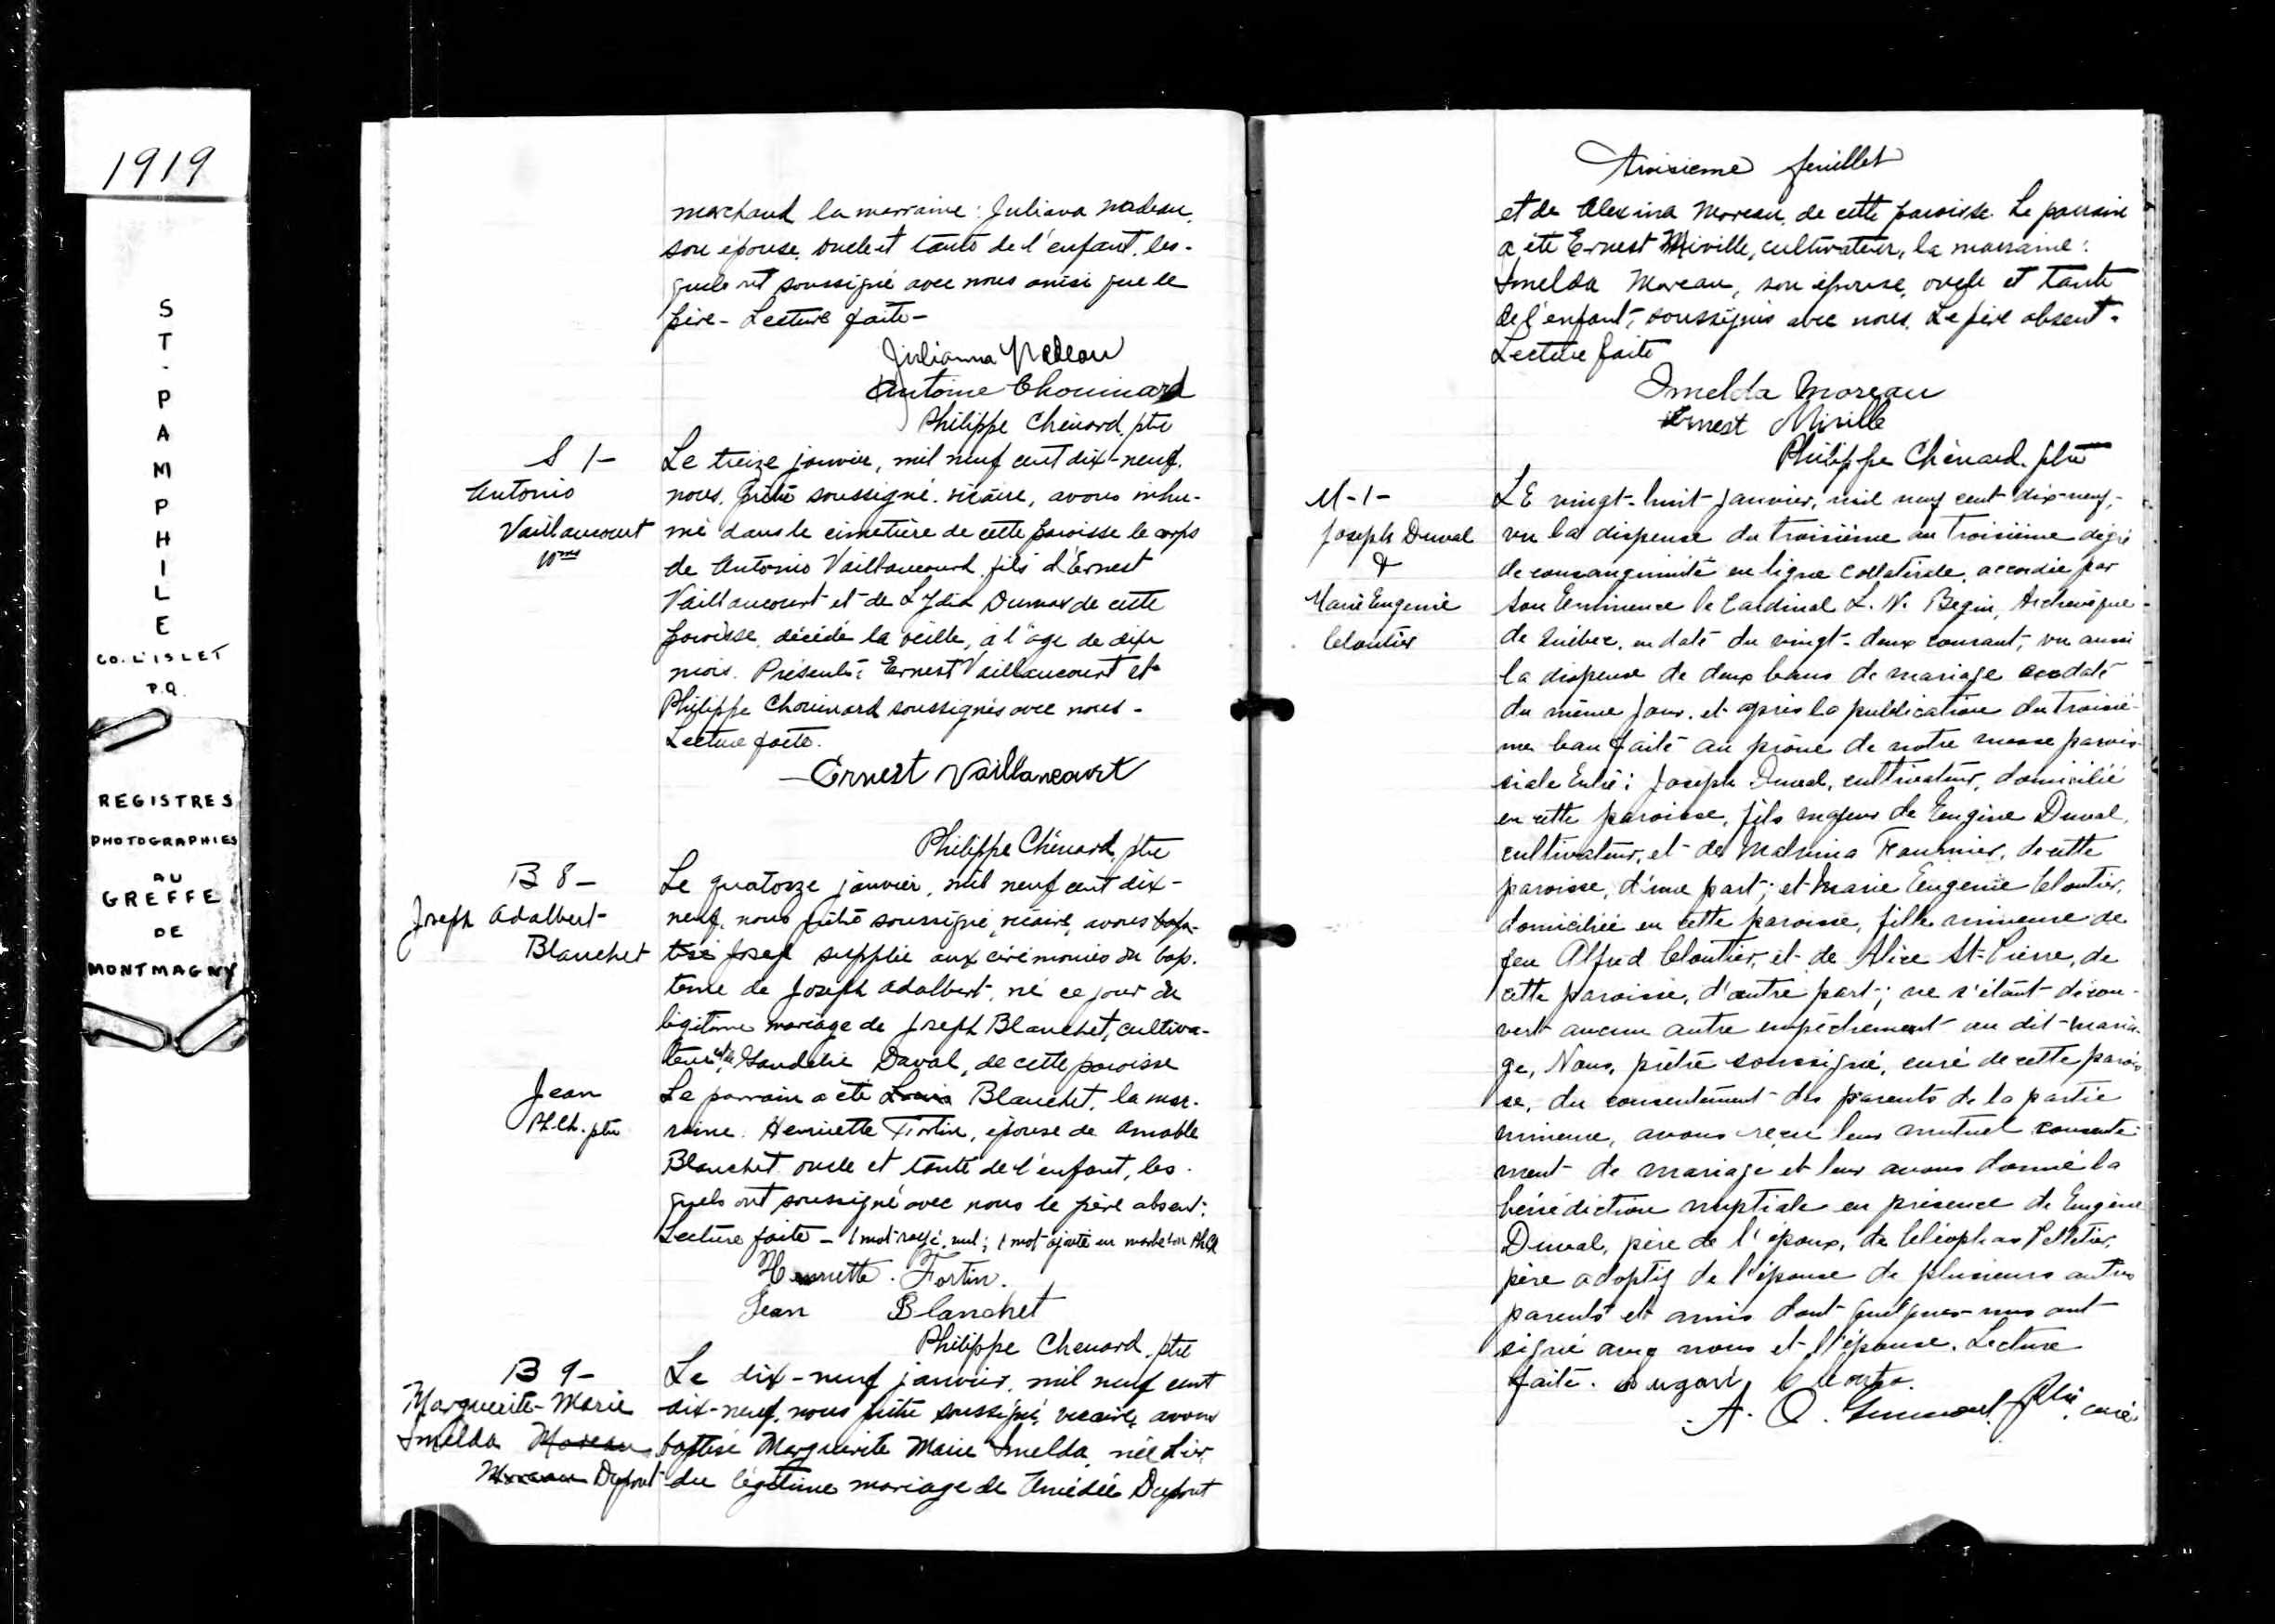 1919
ST-PAMPHILE
CO. L'ISLET
P.Q.
REGISTRES
PHOTOGRAPHIES
AU
GREFFE
DE
MONTMAGNY
marchand la marraine: Juliana Nadeau,
son épouse, oncle et tante de l'enfant, les-
quels ont soussigné avec nous ainsi que le
père - Lecture faite -
Julianna Nadeau
Antoine Chouinard
Philippe Chénard, ptre
S 1-
Antonio
Vaillancourt
10 ms
Le treize janvier, mil neuf cent dix-neuf,
nous, prêtre soussigné, vicaire, avons inhu-
mé dans le cimetière de cette paroisse le corps
de Antonio Vaillancourt, fils d'Ernest
Vaillancourt et de Lydia Dumas de cette
paroisse, décédé la veille, à l'âge de dix
mois. Présents: Ernest Vaillancourt et
Philippe Chouinard soussignés avec nous -
Lecture faite.
Ernest Vaillancourt
Philippe Chénard, ptre
B 8 -
Joseph Adalbert
Blanchet
Le quatorze janvier, mil neuf cent dix-
neuf, nous prêtre soussigné, vicaire, avons bap-
tisé Josep supplié aux cérémonies du bap-
tême de Joseph Adalbert, né ce jour du
légitime mariage de Joseph Blanchet, cultiva-
teur et de Duval, de cette paroisse
Jean
Ph.Ch. ptre
Le parrain a été Louis Blanchet, la mar-
raine Henriette Fortin, épouse de Amable
Blanchet oncle et tante de l'enfant, les-
quels ont soussigné avec nous le père absent.
Lecture faite - 1 mot rayé nul; 1 mot ajouté en marge bon Ph.Ch
Henriette Fortin.
Jean Blanchet
Philippe Chenard, ptre
B 9 -
Marguerite-Marie
Imelda Moreau
Moreau Dupont
Le dix-neuf janvier, mil neuf cent
dix-neuf, nous prêtre soussigné, vicaire, avons
baptisé Marguerite Marie Imelda, née hier
du légitime mariage de Amédée Dupont
Troisieme feuillet
et de Alexina Moreau, de cette paroisse. Le parrain
a été Ernest Miville, cultivateur, la marraine:
Imelda Moreau, son épouse, oncle et tante
de l'enfant, soussignés avec nous. Le père absent.
Lecture faite
Imelda Moreau
Ernest Miville
Philippe Chénard, ptre
M-1-
Joseph Duval
&
Marie Eugenie
Cloutier
LE vingt-huit janvier, mil neuf cent dix-neuf,
vu la dispense du troisième au troisième degré
de consanguinité en ligne collatérale, accordée par
Son Eminence le Cardinal L. N. Begin, Archevêque
de Québec, en date du vingt-deux courant, vu aussi
la dispense de deux bans de mariage en date
du même jour, et après la publication du troisiè-
me ban faite au prône de notre messe parois-
siale Entre: Joseph Duval, cultivateur, domicilié
en cette paroisse, fils majeur de Eugène Duval,
cultivateur, et de Malvina Fournier, de cette
paroisse, d'une part; et Marie Eugenie Cloutier,
domiciliée en cette paroisse, fille mineure de
feu Alfred Cloutier, et de Alice St-Pierre, de
cette paroisse, d'autre part; ne s'étant décou-
vert aucun autre empêchement au dit maria-
ge, Nous, prêtre soussigné, curé de cette parois-
se, du consentement des parents de la partie
mineure, avons reçu leur mutuel consente-
ment de mariage et leur avons donné la
bénédiction nuptiale en présence de Eugène
Duval, père de l'époux, de Cléophas Pelletier,
père adoptif de l'épouse de plusieurs autres
parents et amis dont quelques-uns ont
signé avec nous et l'épouse. Lecture
faite.
A. O. ptre, curé